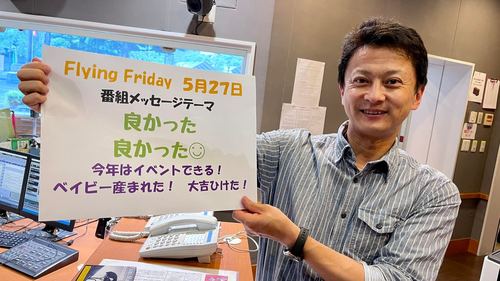 Flying Friday 5月27日
番組メッセージテーマ
良かった
良かった☺
今年はイベントできる！
ベイビー産まれた！ 大吉ひけた！